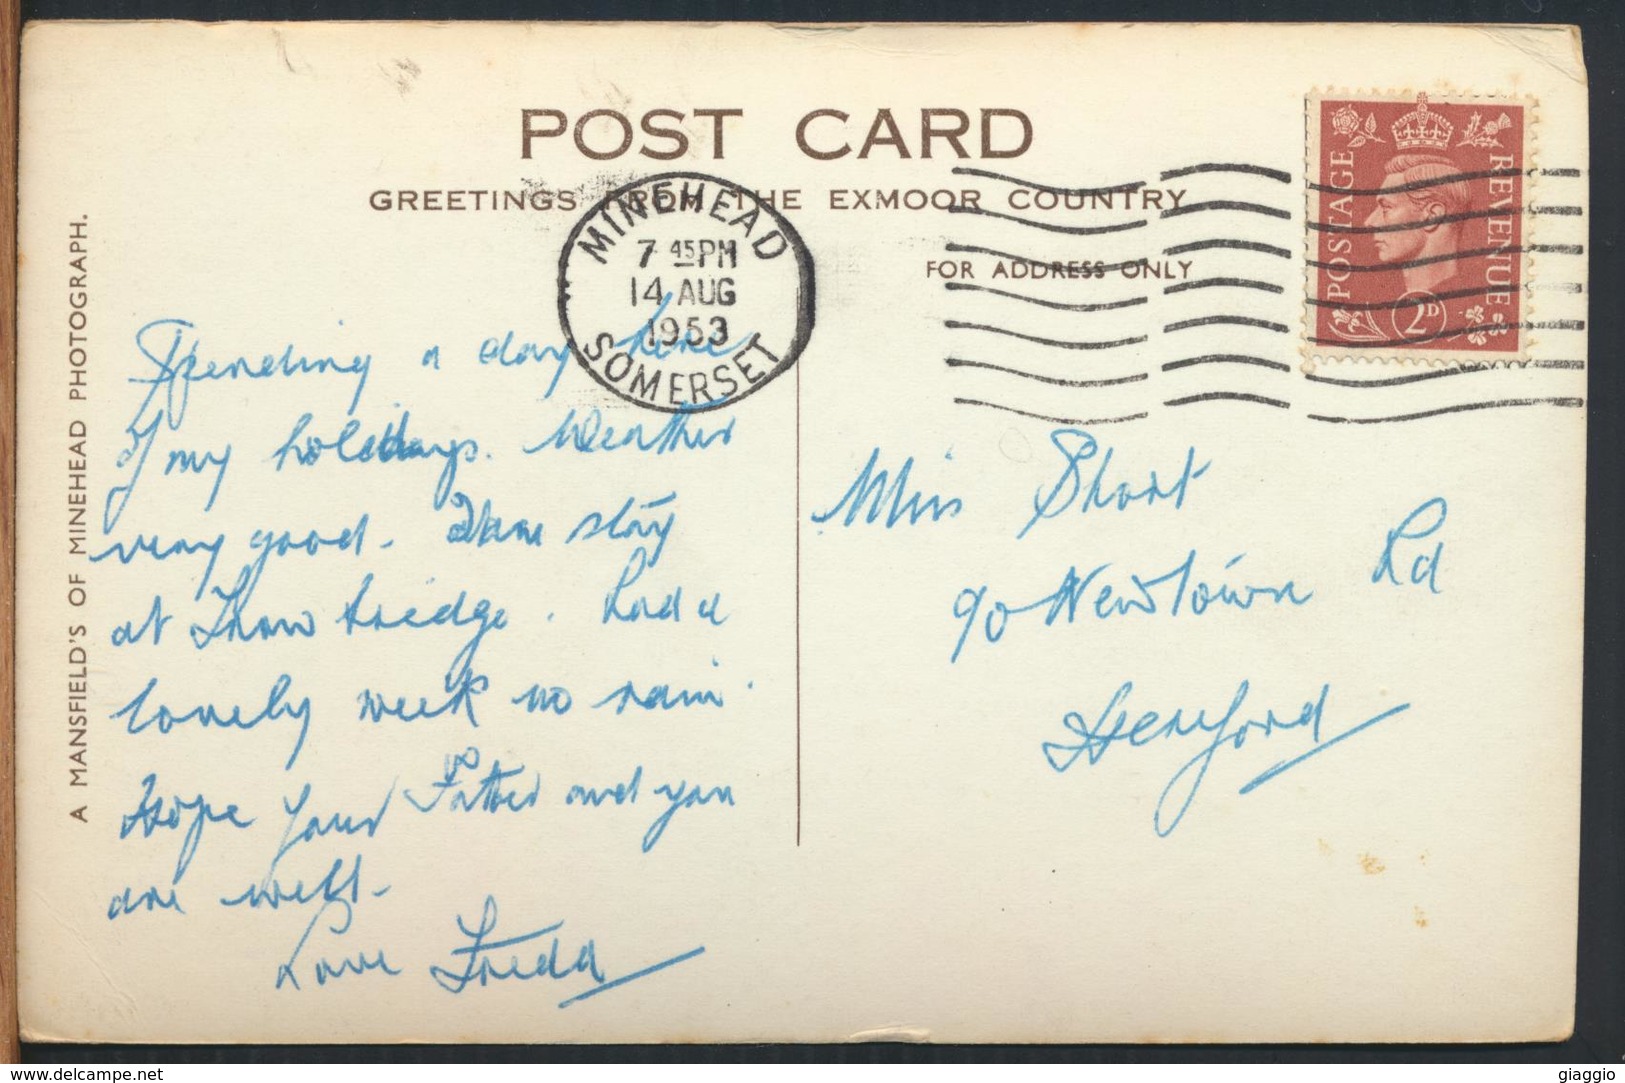 POST CARD
GREETINGS FROM THE EXMOOR COUNTRY
FOR ADDRESS ONLY
A MANSFIELD'S OF MINEHEAD PHOTOGRAPH.
MINEHEAD
7 45PM
14 AUG
1953
SOMERSET
POSTAGE
REVENUE
2D
Spending a day here
of my holidays. Weather
very good. stay
at Trowbridge. Had a
lovely week no rain.
Hope your Father and you
are well.
Love Freda
Miss Short
90 Newtown Rd
Hereford
www.delcampe.net
giaggio